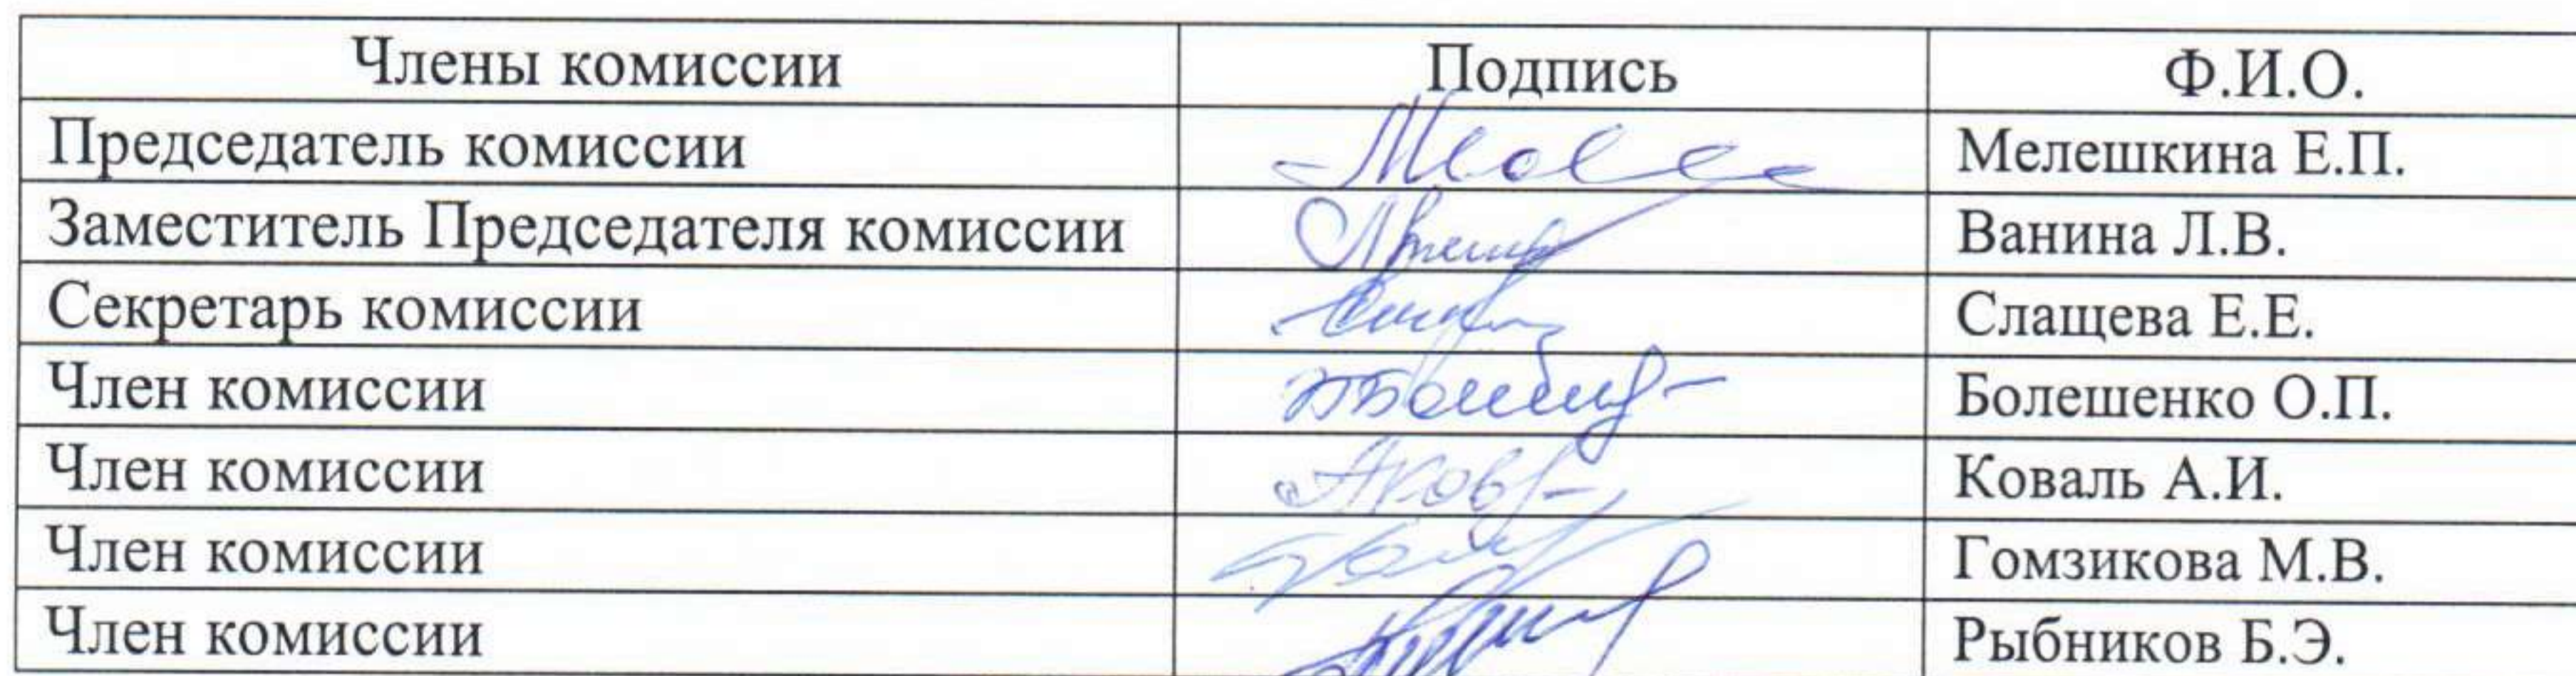 Члены комиссии Подпись Ф.И.О.
Председатель комиссии Мелешкина Е.П.
Заместитель Председателя комиссии Ванина Л.В.
Секретарь комиссии Слащева Е.Е.
Член комиссии Болешенко О.П.
Член комиссии Коваль А.И.
Член комиссии Гомзикова М.В.
Член комиссии Рыбников Б.Э.